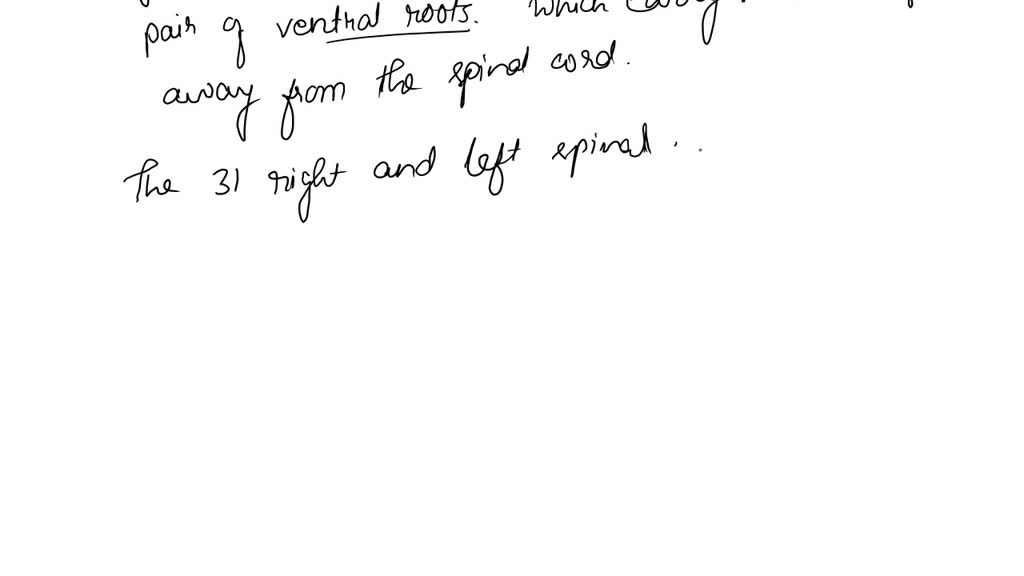 pair of ventral roots. which carry
away from the spinal cord.
The 31 right and left spinal . .